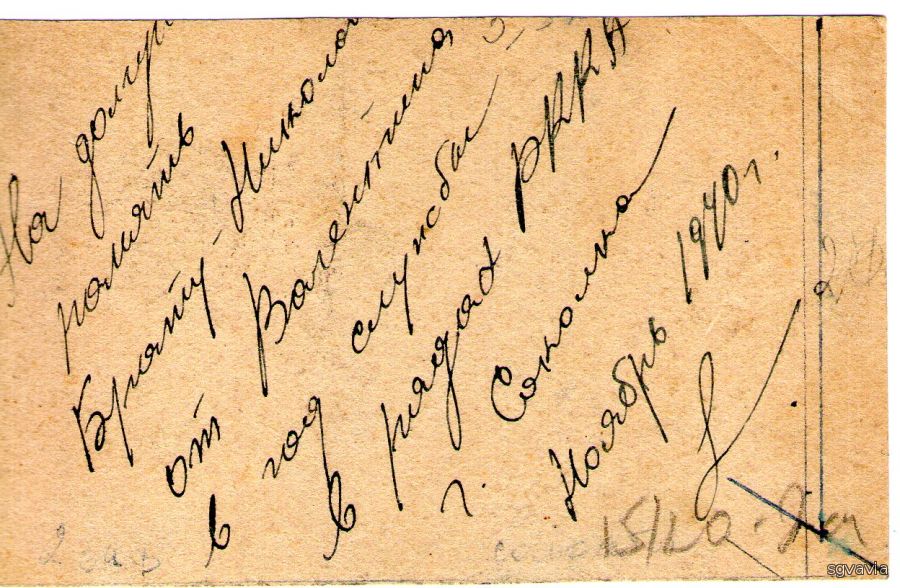 На долгу
память
Брату-Никола
от Валентина
в год службы
в рядах РККА
г. Соколка
Ноябрь 1940г.
sgvavia